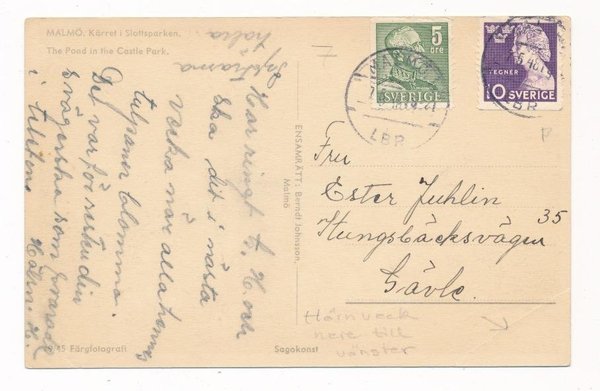 MALMÖ. Kärret i Slottsparken.
The Pond in the Castle Park.
Hjärtliga
hälsn
Har ringt t. H. och
ska dit i nästa
vecka när alla hennes
tulpaner blomma.
Det var förresten din
svägerska som svarade
i telefonen
Hälsn. H.
9/45 Färgfotografi
Sagokonst
ENSAMRÄTT: Berndt Johnsson,
Malmö
5
öre
SVERIGE
TEGNER
10 SVERIGE
LBR
LBR
Fru
Ester Juhlin
Kungsbäcksvägen 35
Gävle.
Hörnveck
nere till
vänster